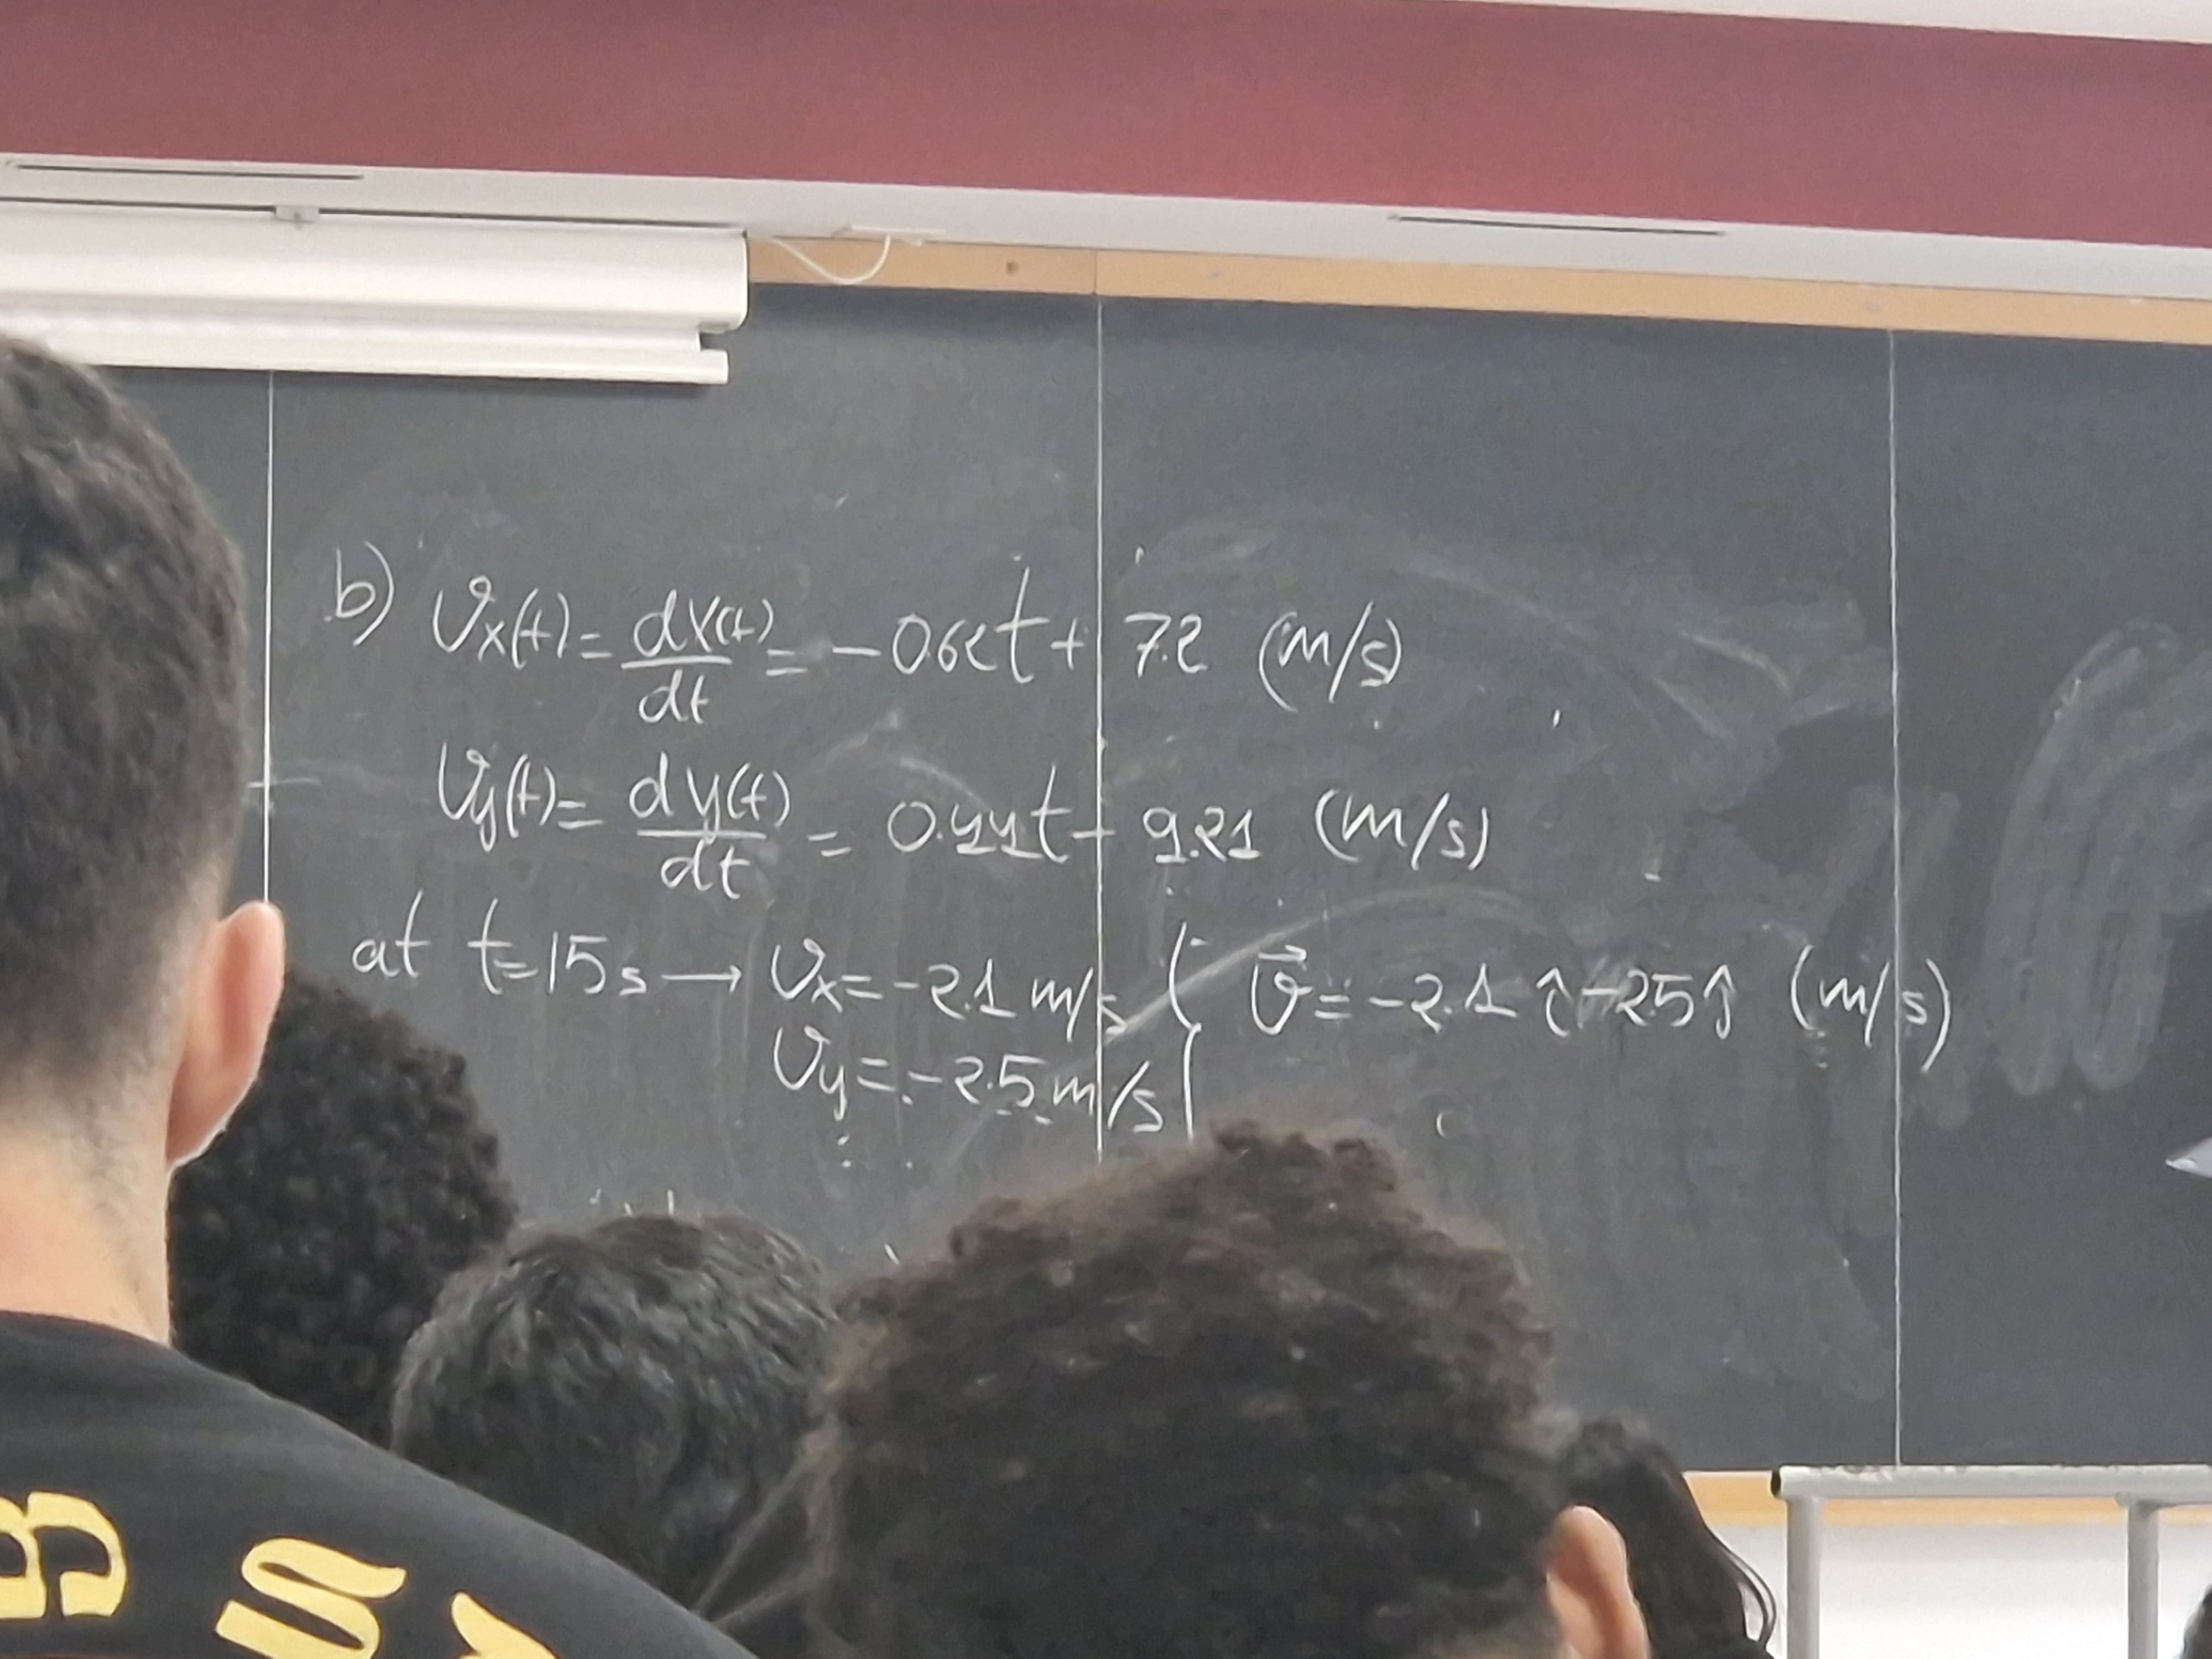 b) Vx(t) = dx(t)/dt = -0.62t + 7.2 (m/s)
Vy(t) = dy(t)/dt = 0.44t - 9.21 (m/s)
at t=15s → Vx = -2.1 m/s { v⃗ = -2.1 î - 2.5 ĵ (m/s)
Vy = -2.5 m/s